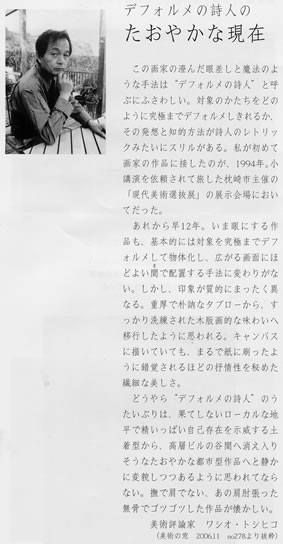 デフォルメの詩人の
たおやかな現在
この画家の澄んだ眼差しと魔法のよ
うな手法は“デフォルメの詩人”と呼
ぶにふさわしい。対象のかたちをどの
ように究極までデフォルメしきれるか、
その発想と知的方法が詩人のレトリッ
クみたいにスリルがある。私が初めて
画家の作品に接したのが、1994年。小
講演を依頼されて旅した枕崎市主催の
「現代美術選抜展」の展示会場におい
てだった。
あれから早12年。いま眼にする作
品も、基本的には対象を究極までデフ
ォルメして物体化し、広がる画面にほ
どよい間で配置する手法に変わりがな
い。しかし、印象が質的にまったく異
なる。重厚で朴訥なタブローから、す
っかり洗練された木版画的な味わいへ
移行したように思われる。キャンバス
に描いていても、まるで紙に刷ったよう
に錯覚されるほどの抒情性を秘めた
繊細な美しさ。
どうやら“デフォルメの詩人”のう
たいぶりは、果てしないローカルな地
平で精いっぱい自己存在を示威する土
着型から、高層ビルの谷間へ消え入り
そうなたおやかな都市型作品へと静か
に変貌しつつあるように思われてなら
ない。撫で肩でない、あの肩肘張った
無骨でゴツゴツした作品が懐かしい。
美術評論家 ワシオ・トシヒコ
(美術の窓 2006.11 no278より抜粋)